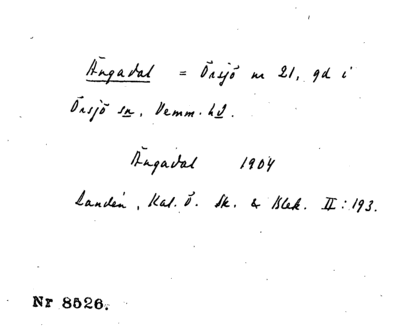 Ängadal = Örsjö nr 21, gd i
Örsjö sn, Vemm. hd.
Ängadal 1904
Landén, Kal. Ö. Sk. & Blek. II: 193.
Nr 8526.